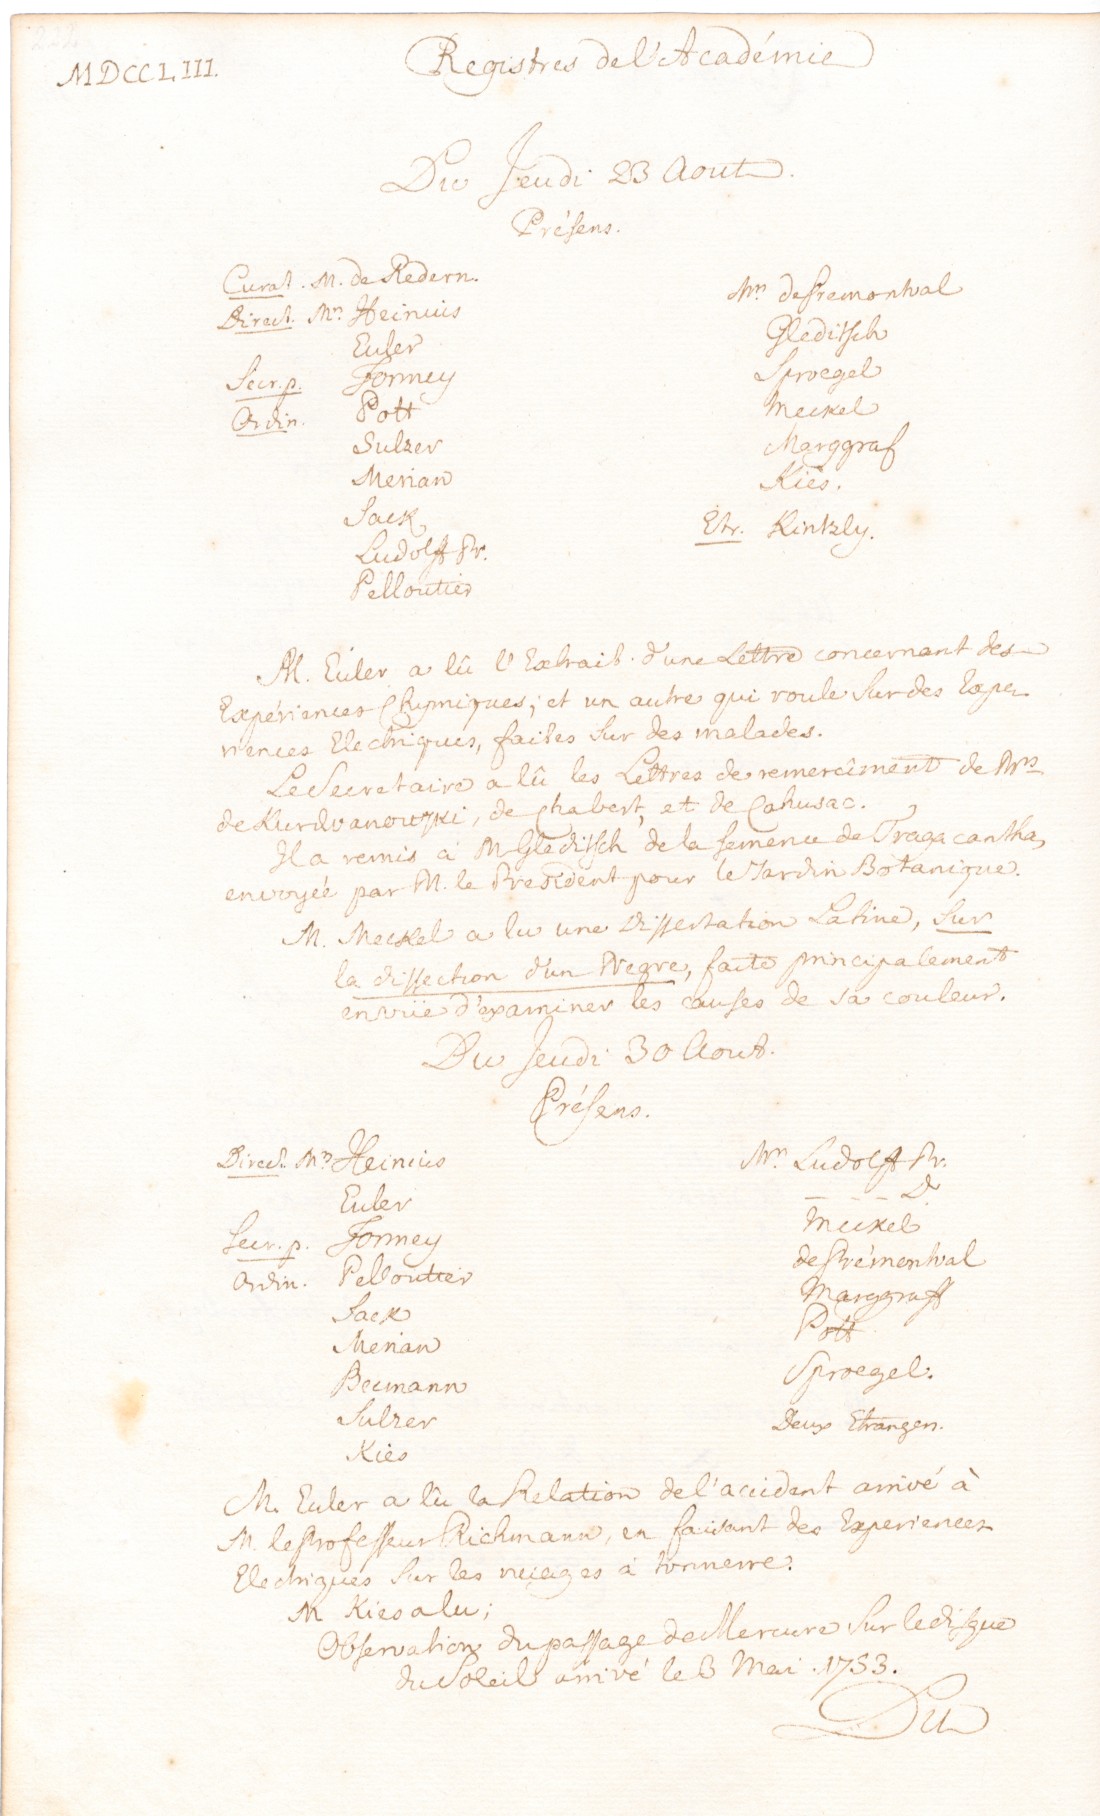 MDCCLIII.
Registres de l'Académie
Du Jeudi 23 Aout.
Présens.
Curat. M. de Redern.
Direct. Mrs Heinius
Euler
Secr. p. Formey
Ordin. Pott
Sulzer
Merian
Sack
Ludolff Pr.
Pelloutier
Mrs de Premontval
Gleditsch
Sproegel
Meckel
Marggraf
Kies.
Etr. Kintzly.
M. Euler a lû l'Extrait d'une Lettre concernant des
Expériences Chymiques; et un autre qui roule sur des Expe-
riences Electriques, faites sur des malades.
Le Secretaire a lû les Lettres de remerciment de Mrs
de Kurdwanowski, de Chabert, et de Cahusac.
Il a remis à M. Gleditsch de la semence de Tragacantha,
envoyée par M. le President pour le Jardin Botanique.
M. Meckel a lu une Dissertation Latine, sur
la dissection d'un Negre, faite principalement
en vüe d'examiner les causes de sa couleur.
Du Jeudi 30 Aout.
Présens.
Direct. Mrs Heinius
Euler
Secr. p. Formey
Ordin. Pelloutier
Sack
Merian
Becmann
Sulzer
Kies
Mrs Ludolff Pr.
- - - - D.
Meckel
de Prémontval
Marggraff
Pott
Sproegel.
Deux Etrangers.
M. Euler a lû la Relation de l'accident arrivé à
M. le Professeur Richmann, en faisant des Experiences
Electriques sur les nuages à tonnerre.
M Kies a lu;
Observation du passage de Mercure sur le disque
du Soleil arrivé le 6 Mai 1753.
Du